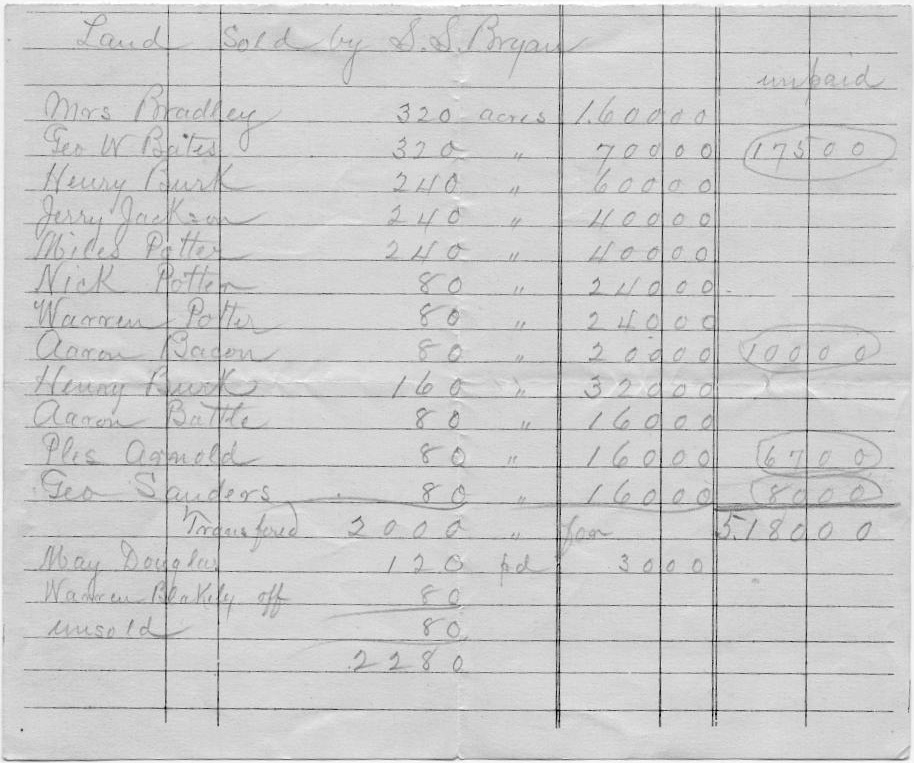 Land Sold by S. S. Bryan
unpaid
Mrs Bradley 320 acres 1.600 00
Geo W Bates 320 " 700 00 175 00
Henry Burk 240 " 600 00
Jerry Jackson 240 " 400 00
Miles Potter 240 " 400 00
Nick Potter 80 " 240 00
Warren Potter 80 " 240 00
Aaron Bacon 80 " 200 00 100 00
Henry Burk 160 " 320 00
Aaron Battle 80 " 160 00
Ples Arnold 80 " 160 00 67 00
Geo Sanders 80 " 160 00 80 00
Transfered 2000 " for 5.180 00
May Douglas 120 pd 30 00
Warren Blakely off 80
unsold 80
2280